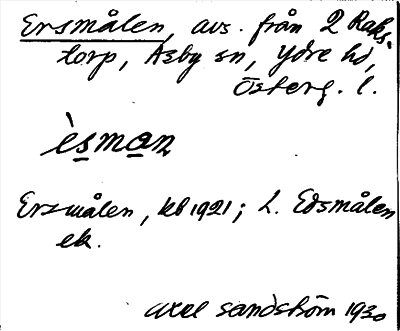 Ersmålen, avs. från 2 Raks-
torp, Asby sn, Ydre hd,
Österg. l.
èsman
Ersmålen, kb 1921; L. Edsmålen
ek.
Axel Sandström 1930